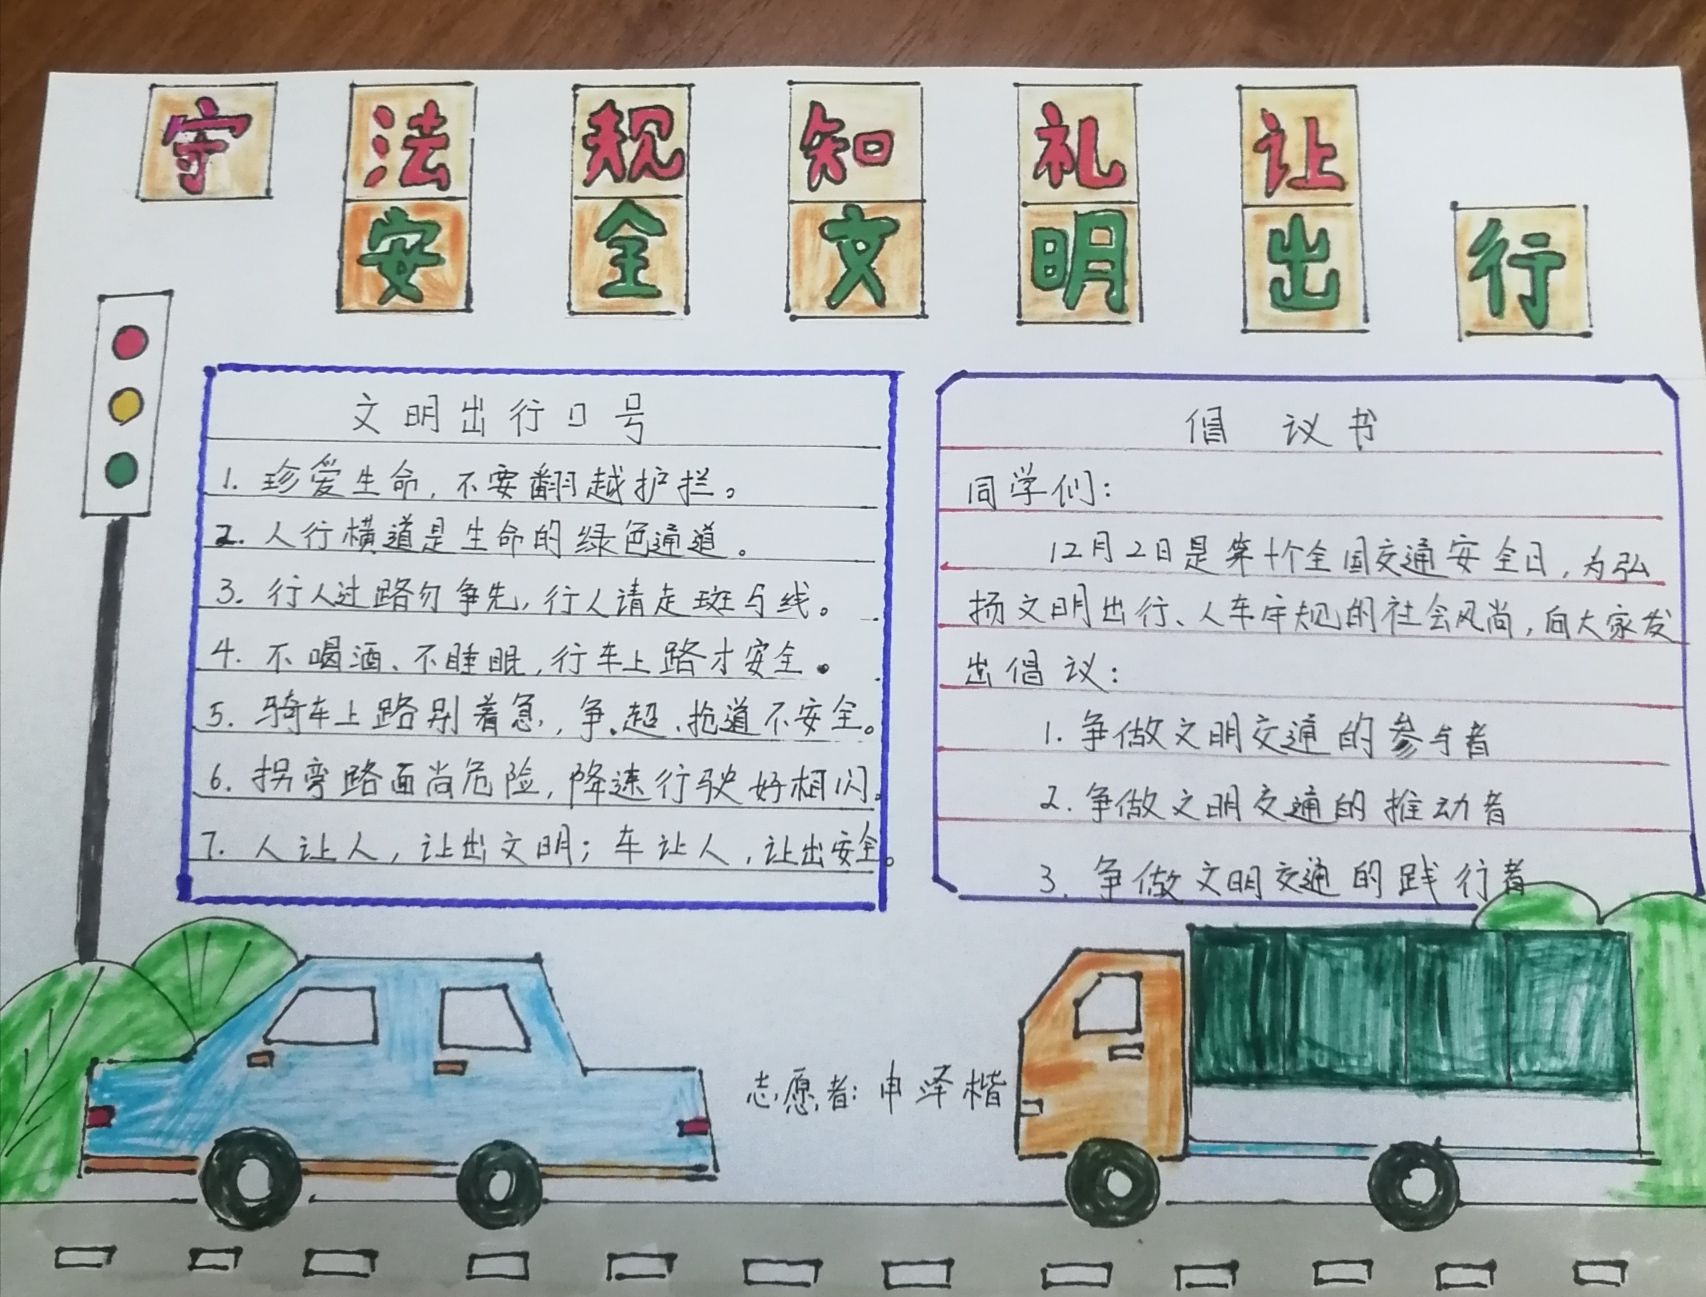 守法规知礼让
安全文明出行
文明出行口号
1. 珍爱生命,不要翻越护拦。
2. 人行横道是生命的绿色通道。
3. 行人过路勿争先,行人请走斑与线。
4. 不喝酒、不睡眠,行车上路才安全。
5. 骑车上路别着急,争、超、抢道不安全。
6. 拐弯路面尚危险,降速行驶好相闪。
7. 人让人,让出文明;车让人,让出安全。
倡议书
同学们:
12月2日是第十个全国交通安全日,为弘
扬文明出行、人车守规的社会风尚,向大家发
出倡议:
1. 争做文明交通的参与者
2. 争做文明交通的推动者
3. 争做文明交通的践行者
志愿者:申泽楷